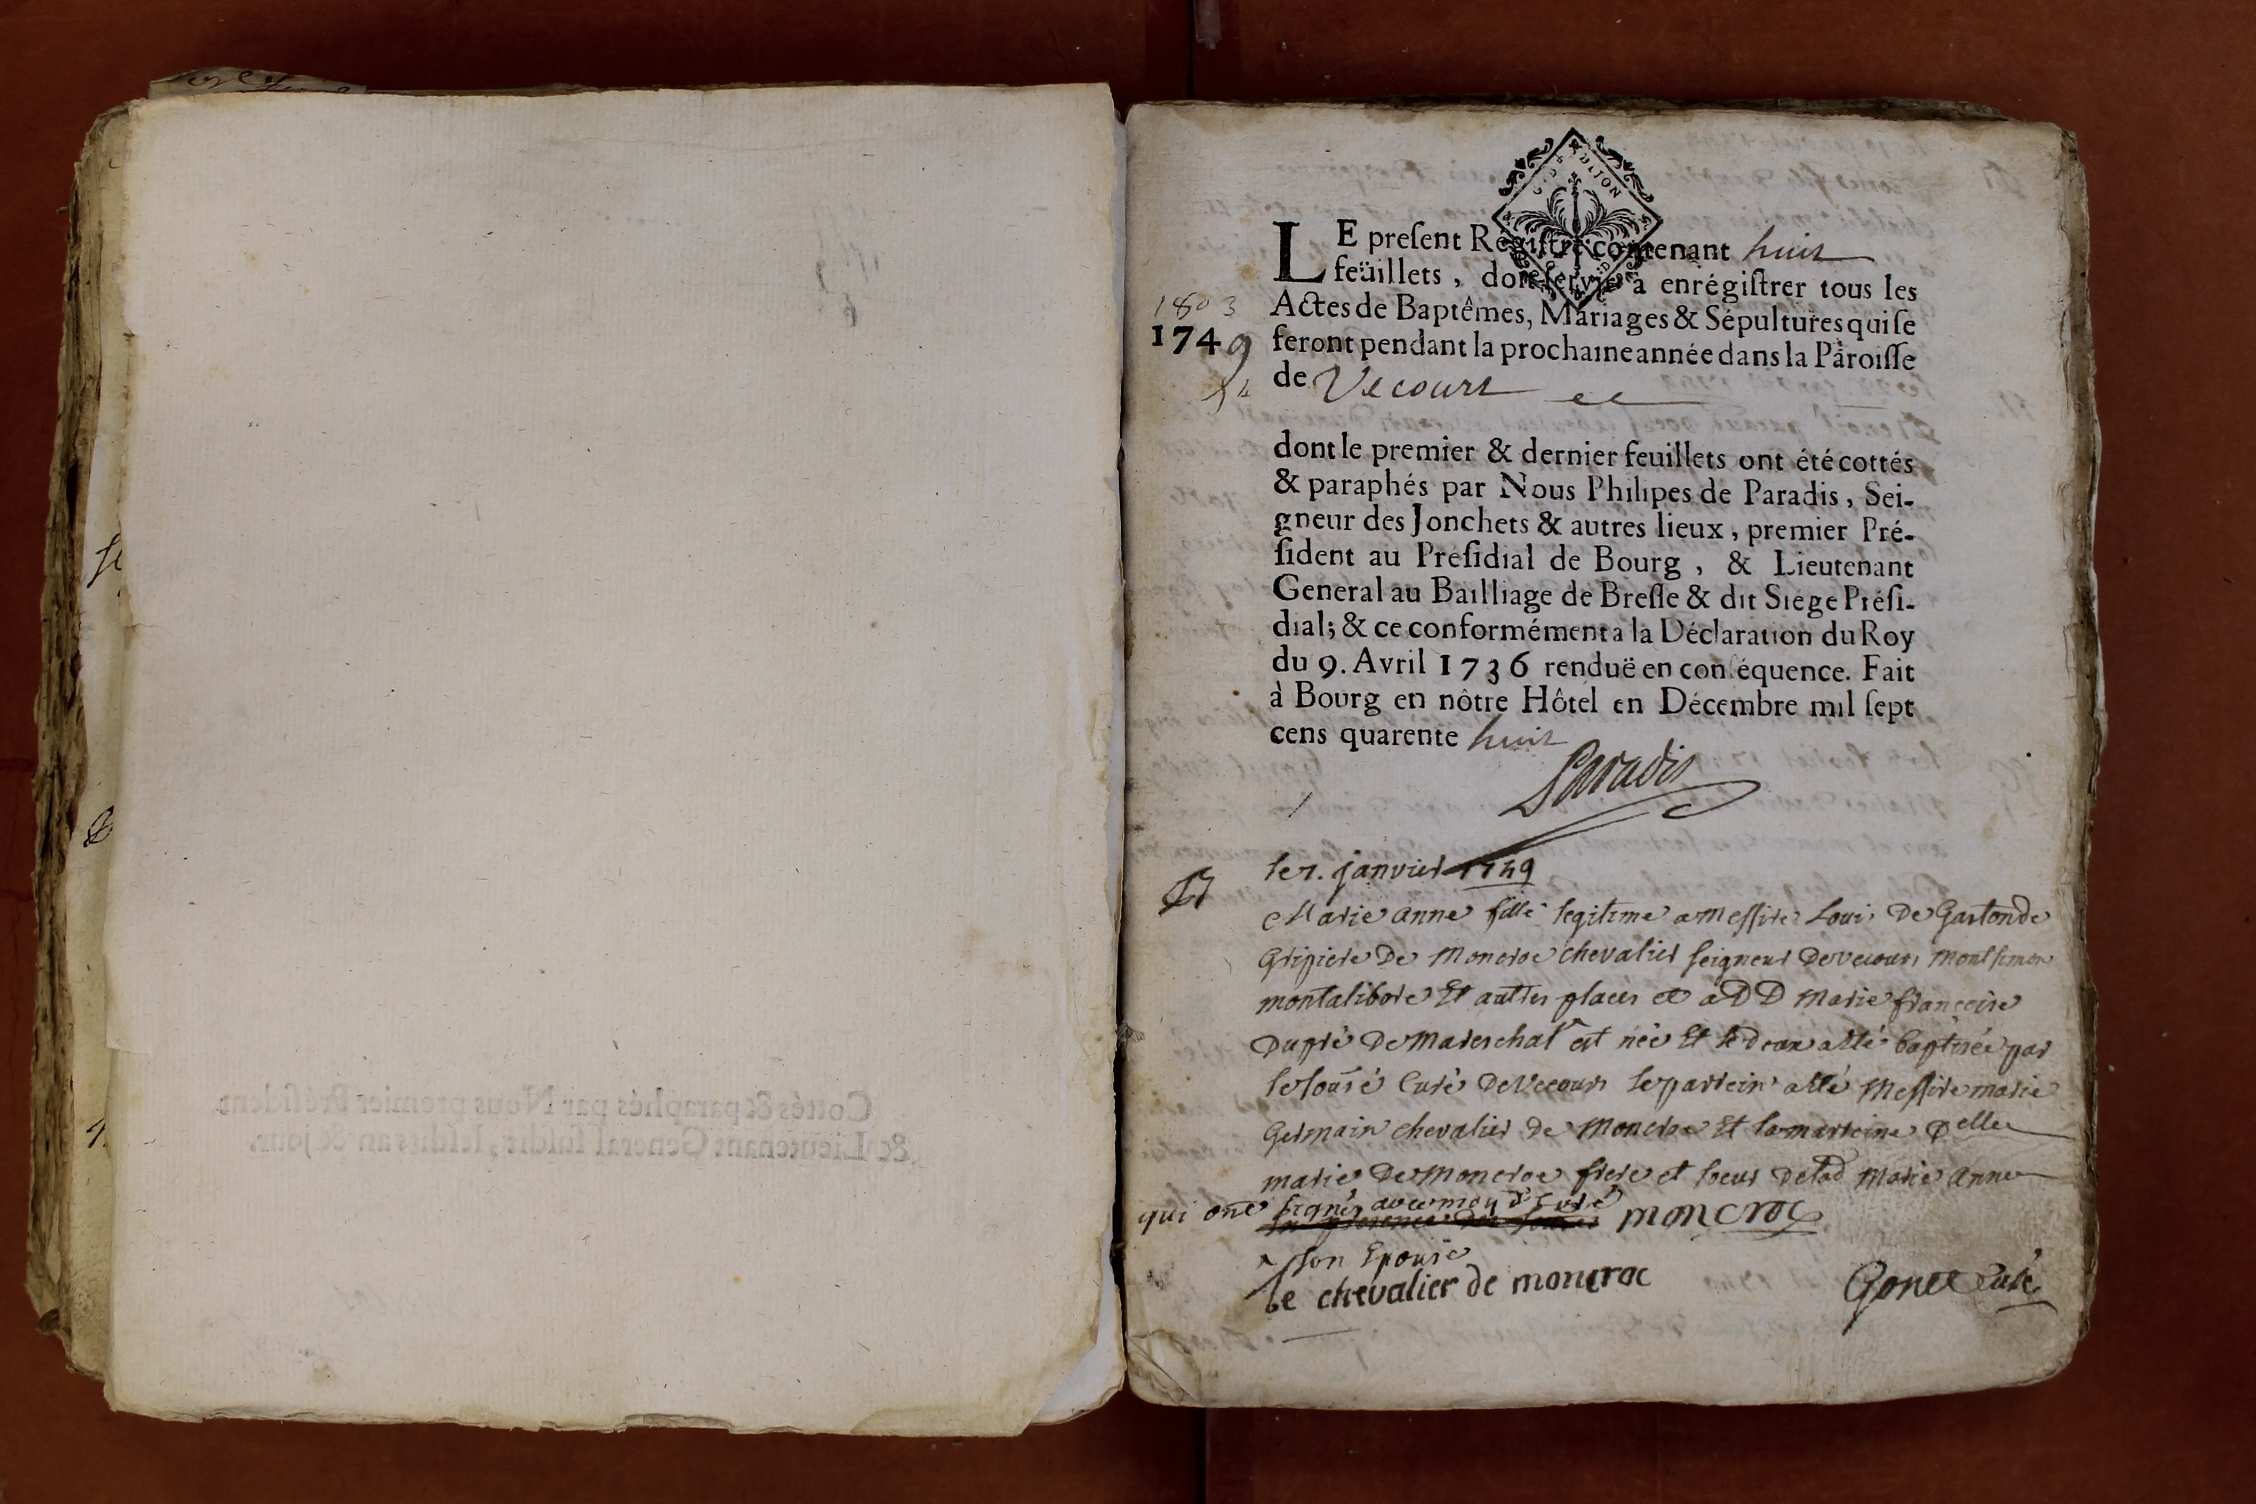 G. D. DIJON
LE preſent Régiſtre contenant huit
feüillets, doit ſervir à enrégiſtrer tous les
1803
Actes de Baptêmes, Mariages & Sépultures qui ſe
1749
feront pendant la prochaine année dans la Paroiſſe
de Vecourt
dont le premier & dernier feuillets ont été cottés
& paraphés par Nous Philipes de Paradis, Sei-
gneur des Jonchets & autres lieux, premier Pré-
ſident au Préſidial de Bourg, & Lieutenant
General au Bailliage de Breſſe & dit Siége Préſi-
dial; & ce conformément a la Déclaration du Roy
du 9. Avril 1736 renduë en conſéquence. Fait
à Bourg en nôtre Hôtel en Décembre mil ſept
cens quarente huit
Paradis
le 7. janvier 1749
Marie anne fille legitime a Messire Loui De Gaston de
Gripiere De Moncroc chevalier seigneur De vecours Montsimon
montalibore Et autres places et a D D Marie françoise
Dupré De Mareschal est née Et a été baptisée par
le sousé Curé De Vecours le parrein a été Messire marie
Germain chevalier de Moncroc Et la marreine Delle
marie De Moncroc frere et soeur de lad Marie Anne
qui ont signés avec moy d. Curé
moncroc
son Epouse
le chevalier de moncroc
Gonet Curé
Cottés & paraphés par Nous premier Préſident
& Lieutenant General ſuſdit, leſdits an & jour.